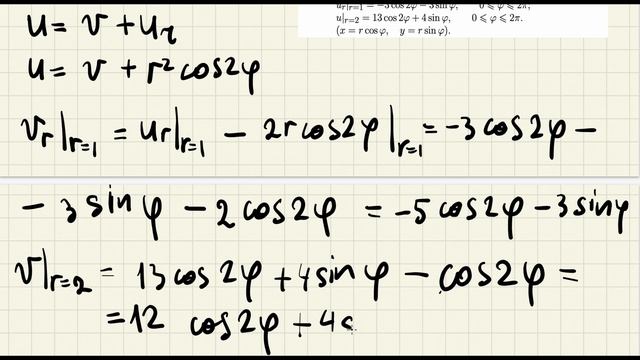 u|r=2 = 13 cos 2φ + 4 sin φ, 0 ⩽ φ ⩽ 2π.
(x = r cos φ, y = r sin φ).
u = v + u_r
u = v + r² cos2φ
v_r|r=1 = u_r|r=1 − 2r cos2φ|r=1 = −3 cos 2φ −
− 3 sin φ − 2 cos 2φ = −5 cos 2φ − 3 sin φ
v|r=2 = 13 cos 2φ + 4 sin φ − cos2φ =
= 12 cos 2φ + 4 s